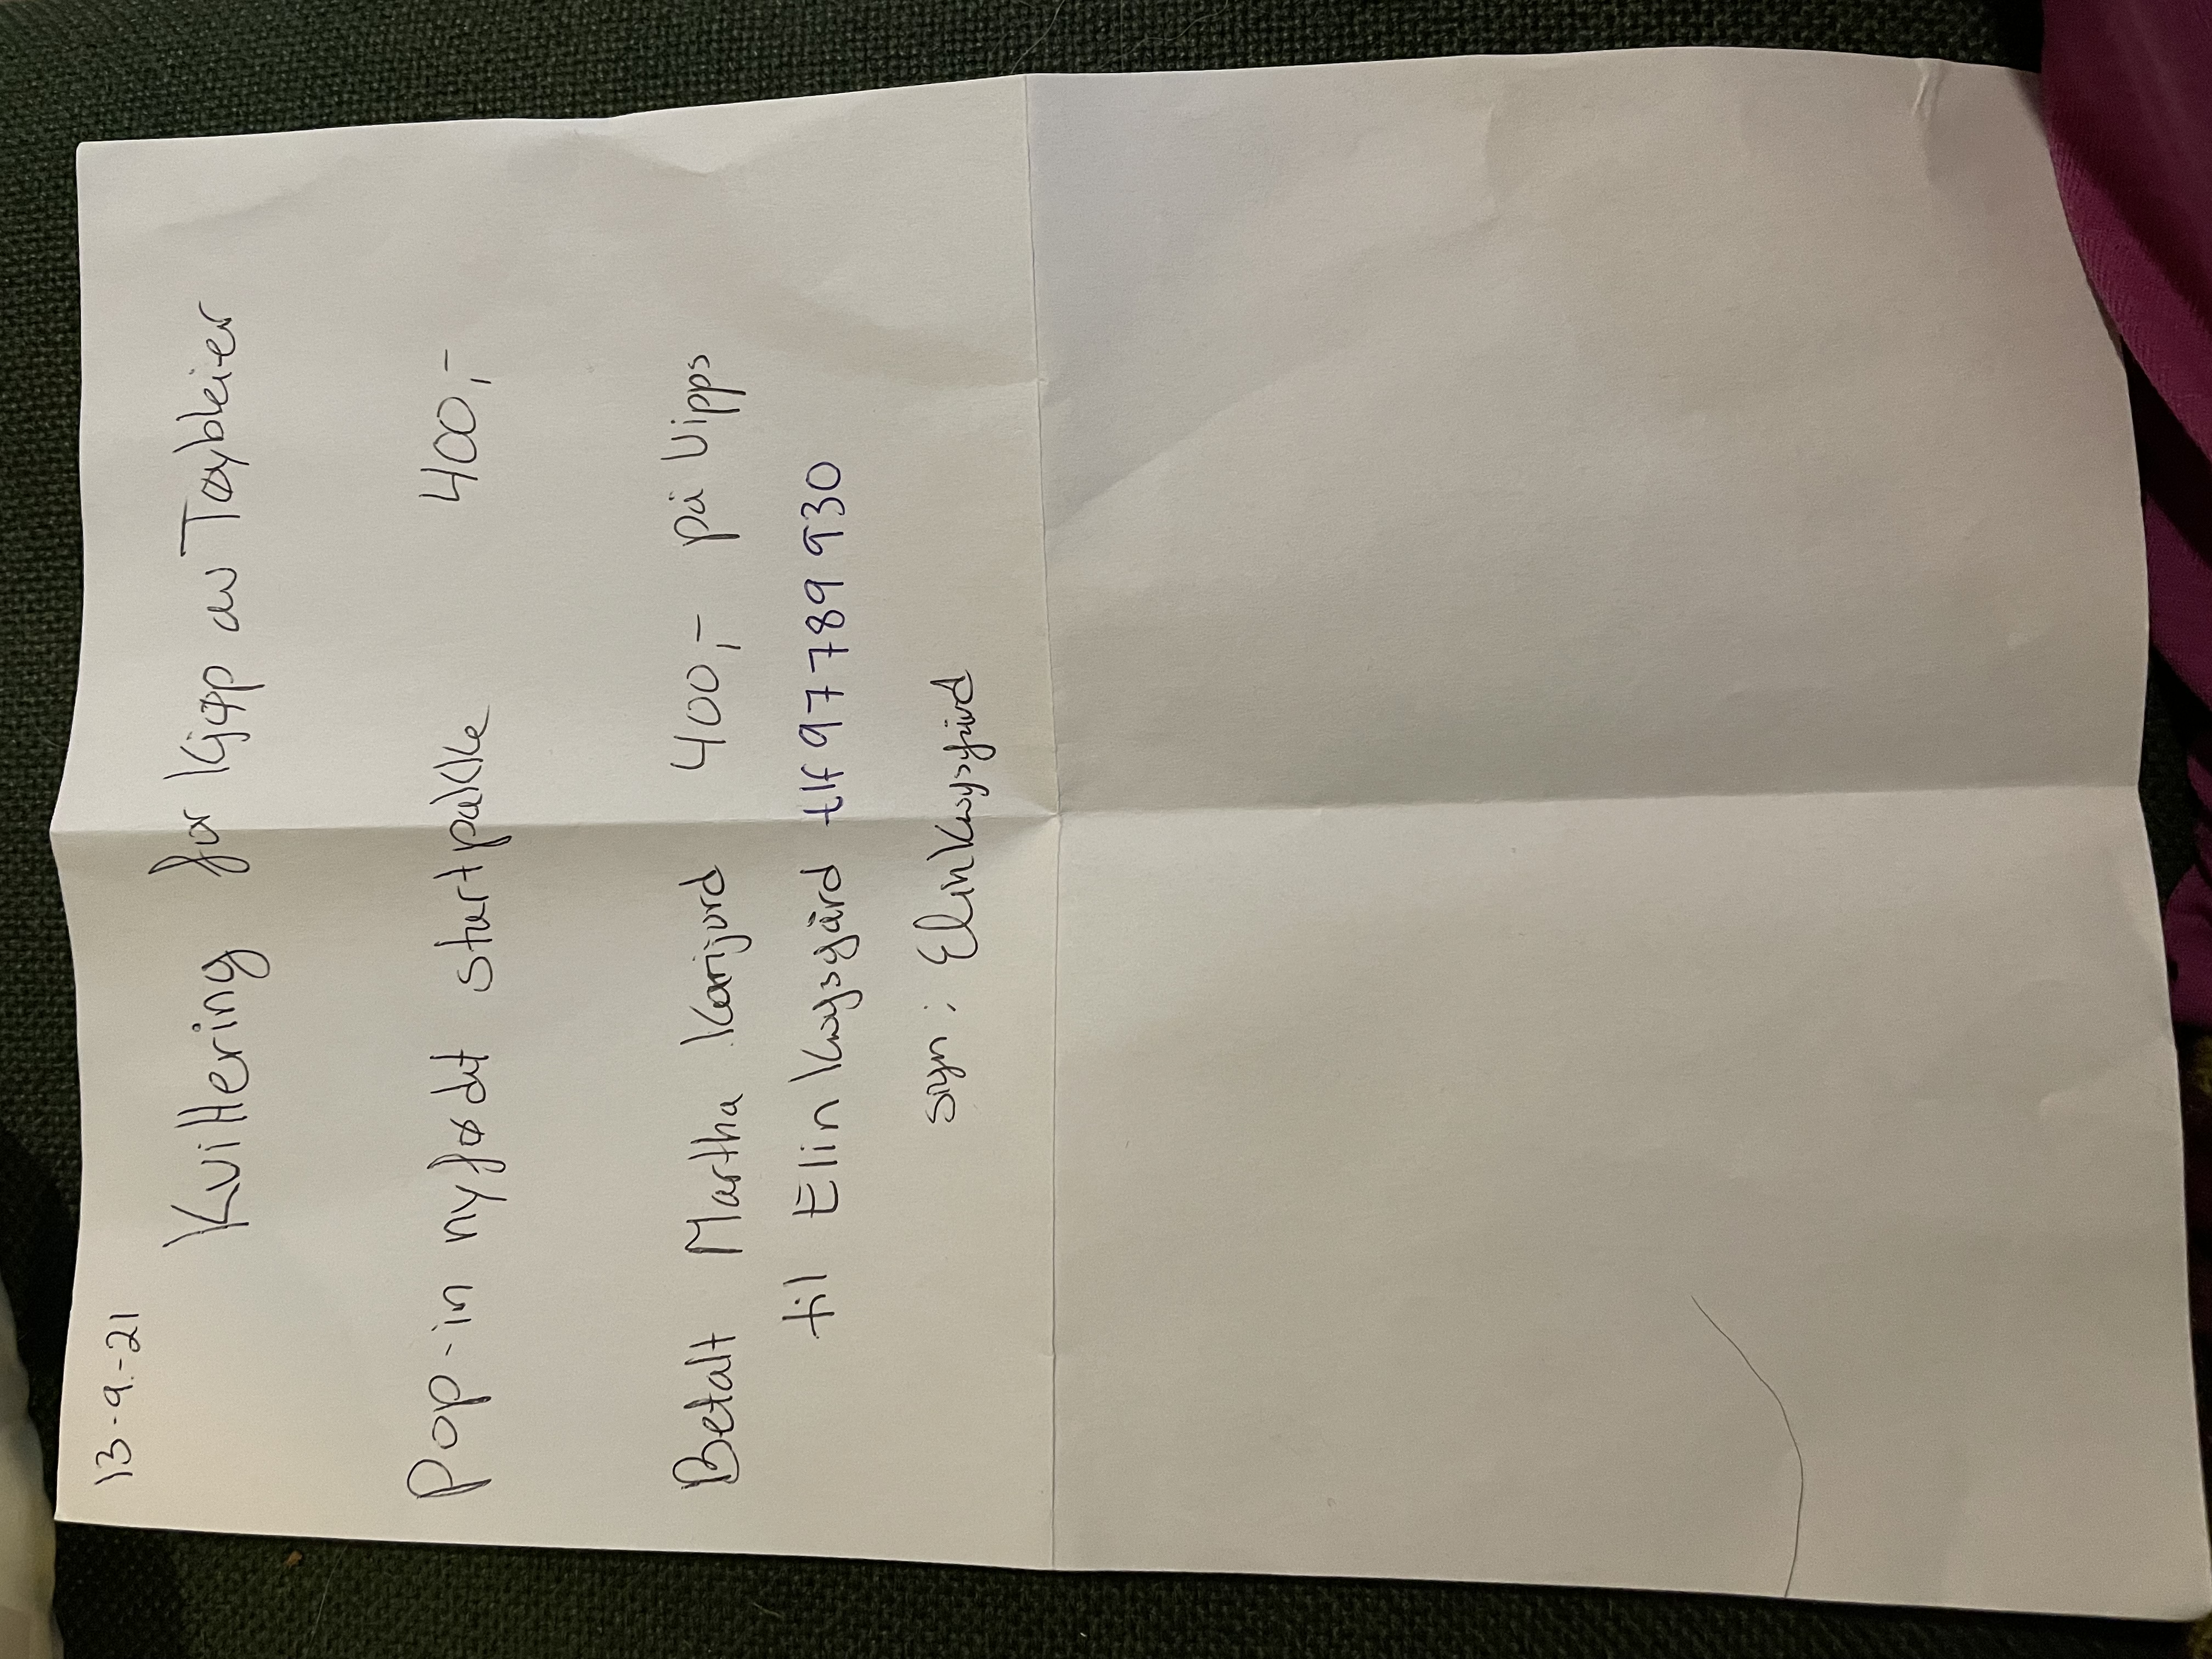 13-9.-21
Kvittering for kjøp av Tøybleier
Pop-in nyfødt startpakke 400,-
Betalt Martha Karijord 400,- på Vipps
til Elin Kwsgård tlf 97789930
sign: Elin Kwsgård